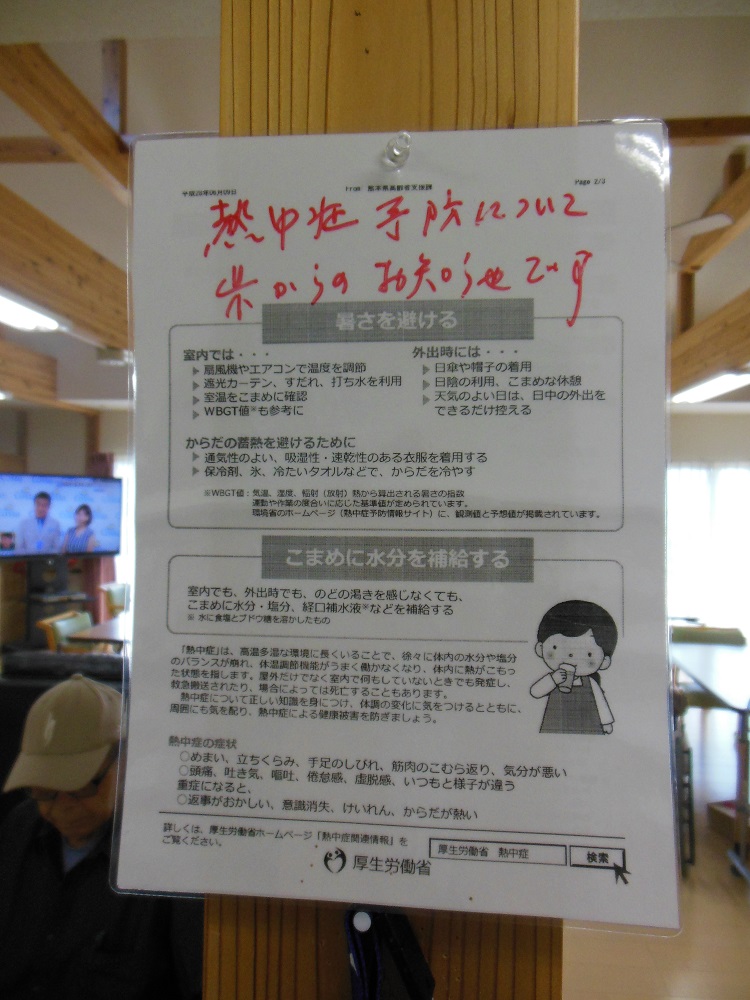 平成28年06月09日 From 熊本県高齢者支援課 Page 2/3
熱中症予防について
県からのお知らせです
暑さを避ける
室内では・・・
▶扇風機やエアコンで温度を調節
▶遮光カーテン、すだれ、打ち水を利用
▶室温をこまめに確認
▶WBGT値※も参考に
外出時には・・・
▶日傘や帽子の着用
▶日陰の利用、こまめな休憩
▶天気のよい日は、日中の外出を
できるだけ控える
からだの蓄熱を避けるために
▶通気性のよい、吸湿性・速乾性のある衣服を着用する
▶保冷剤、氷、冷たいタオルなどで、からだを冷やす
※WBGT値:気温、湿度、輻射(放射)熱から算出される暑さの指数
運動や作業の度合いに応じた基準値が定められています。
環境省のホームページ(熱中症予防情報サイト)に、観測値と予想値が掲載されています。
こまめに水分を補給する
室内でも、外出時でも、のどの渇きを感じなくても、
こまめに水分・塩分、経口補水液※などを補給する
※ 水に食塩とブドウ糖を溶かしたもの
「熱中症」は、高温多湿な環境に長くいることで、徐々に体内の水分や塩分
のバランスが崩れ、体温調節機能がうまく働かなくなり、体内に熱がこもっ
た状態を指します。屋外だけでなく室内で何もしていないときでも発症し、
救急搬送されたり、場合によっては死亡することもあります。
熱中症について正しい知識を身につけ、体調の変化に気をつけるとともに、
周囲にも気を配り、熱中症による健康被害を防ぎましょう。
熱中症の症状
○めまい、立ちくらみ、手足のしびれ、筋肉のこむら返り、気分が悪い
○頭痛、吐き気、嘔吐、倦怠感、虚脱感、いつもと様子が違う
重症になると、
○返事がおかしい、意識消失、けいれん、からだが熱い
詳しくは、厚生労働省ホームページ「熱中症関連情報」を
ご覧ください。
厚生労働省
厚生労働省 熱中症 検索